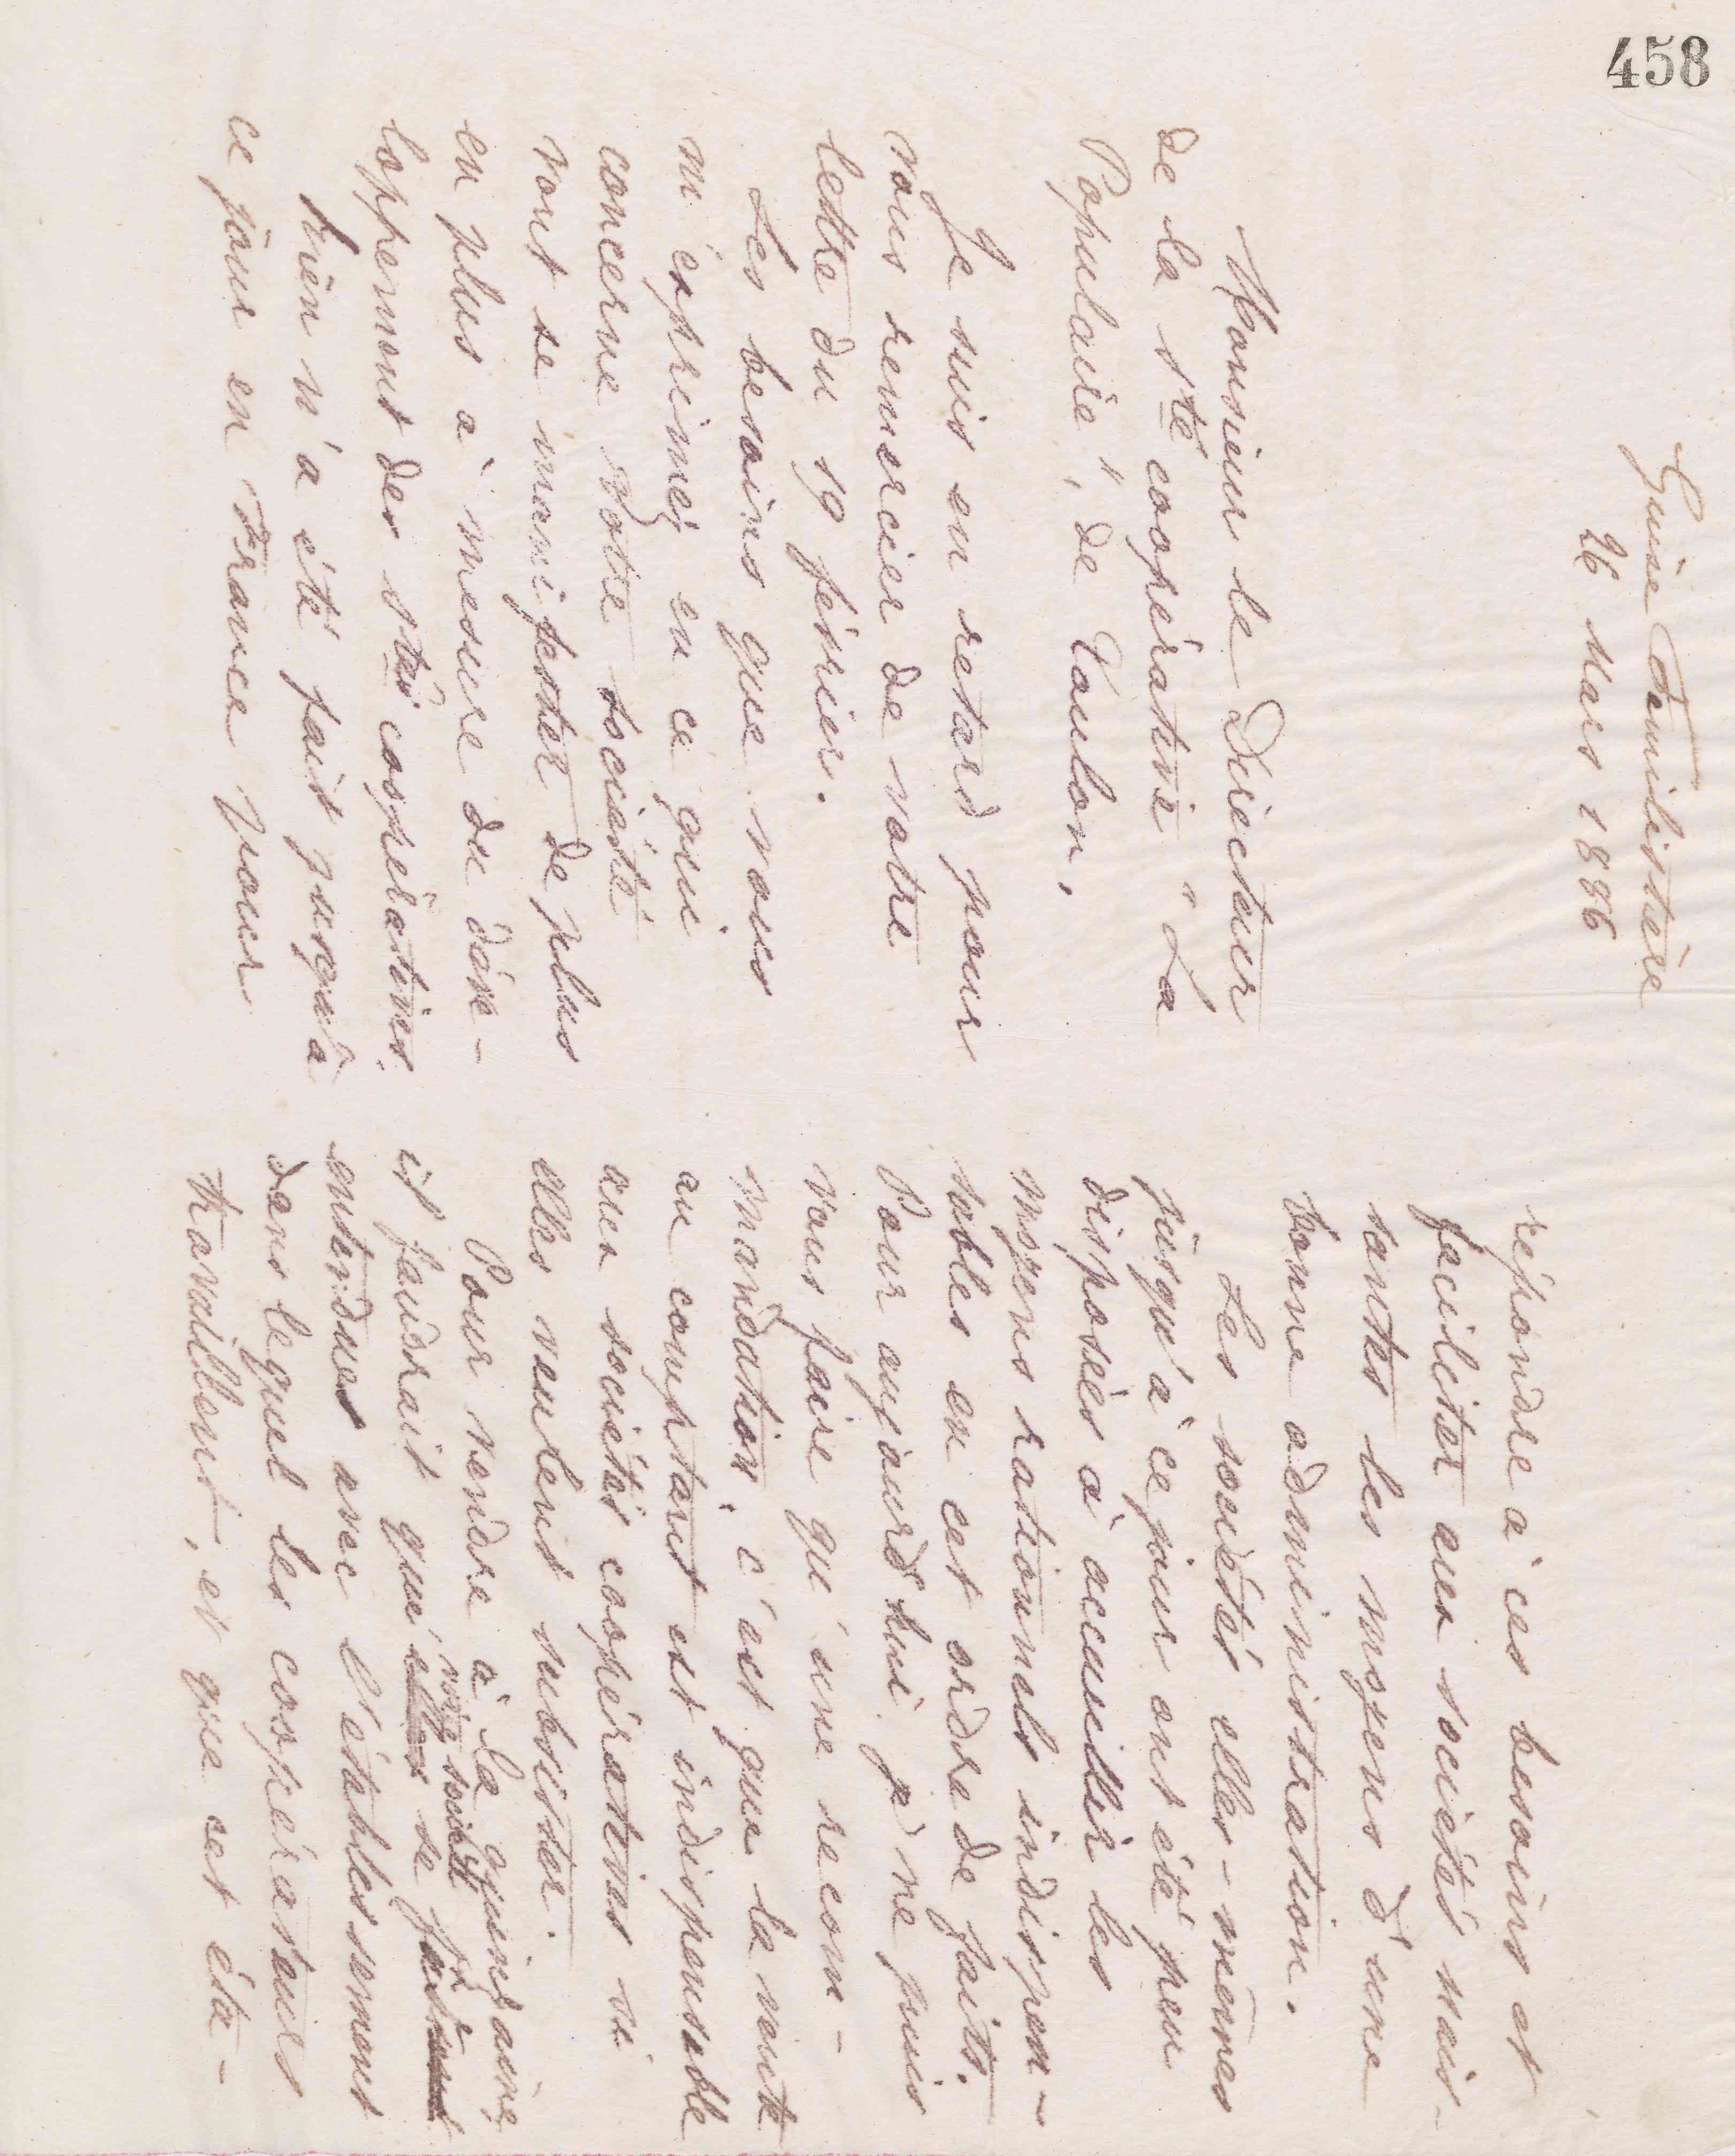 458
Guise Familistère
26 Mars 1886
Monsieur le Directeur
de la sté coopérative "La
Populaire", de Toulon,
Je suis en retard pour
vous remercier de votre
lettre du 19 février.
Les besoins que vous
m'exprimez en ce qui
concerne votre société
vont se manifester de plus
en plus à mesure du déve-
loppement des stés coopératives.
Rien n'a été fait jusqu'à
ce jour en France pour
répondre à ces besoins et
faciliter aux sociétés nais-
santes les moyens d'une
bonne administration.
Les sociétés elles-mêmes
jusqu'à ce jour ont été peu
disposées à accueillir les
moyens rationnels indispen-
sables en cet ordre de faits.
Pour aujourd'hui je ne puis
vous faire qu'une recom-
mandation, c'est que la vente
au comptant est indispensable
aux sociétés coopératives si
elles veulent subsister.
Pour vendre à la quinzaine,
vos sociétés
il faudrait que elles se fussent
entendues avec l'établissement
dans lequel les coopérateurs
travaillent, et que cet éta-